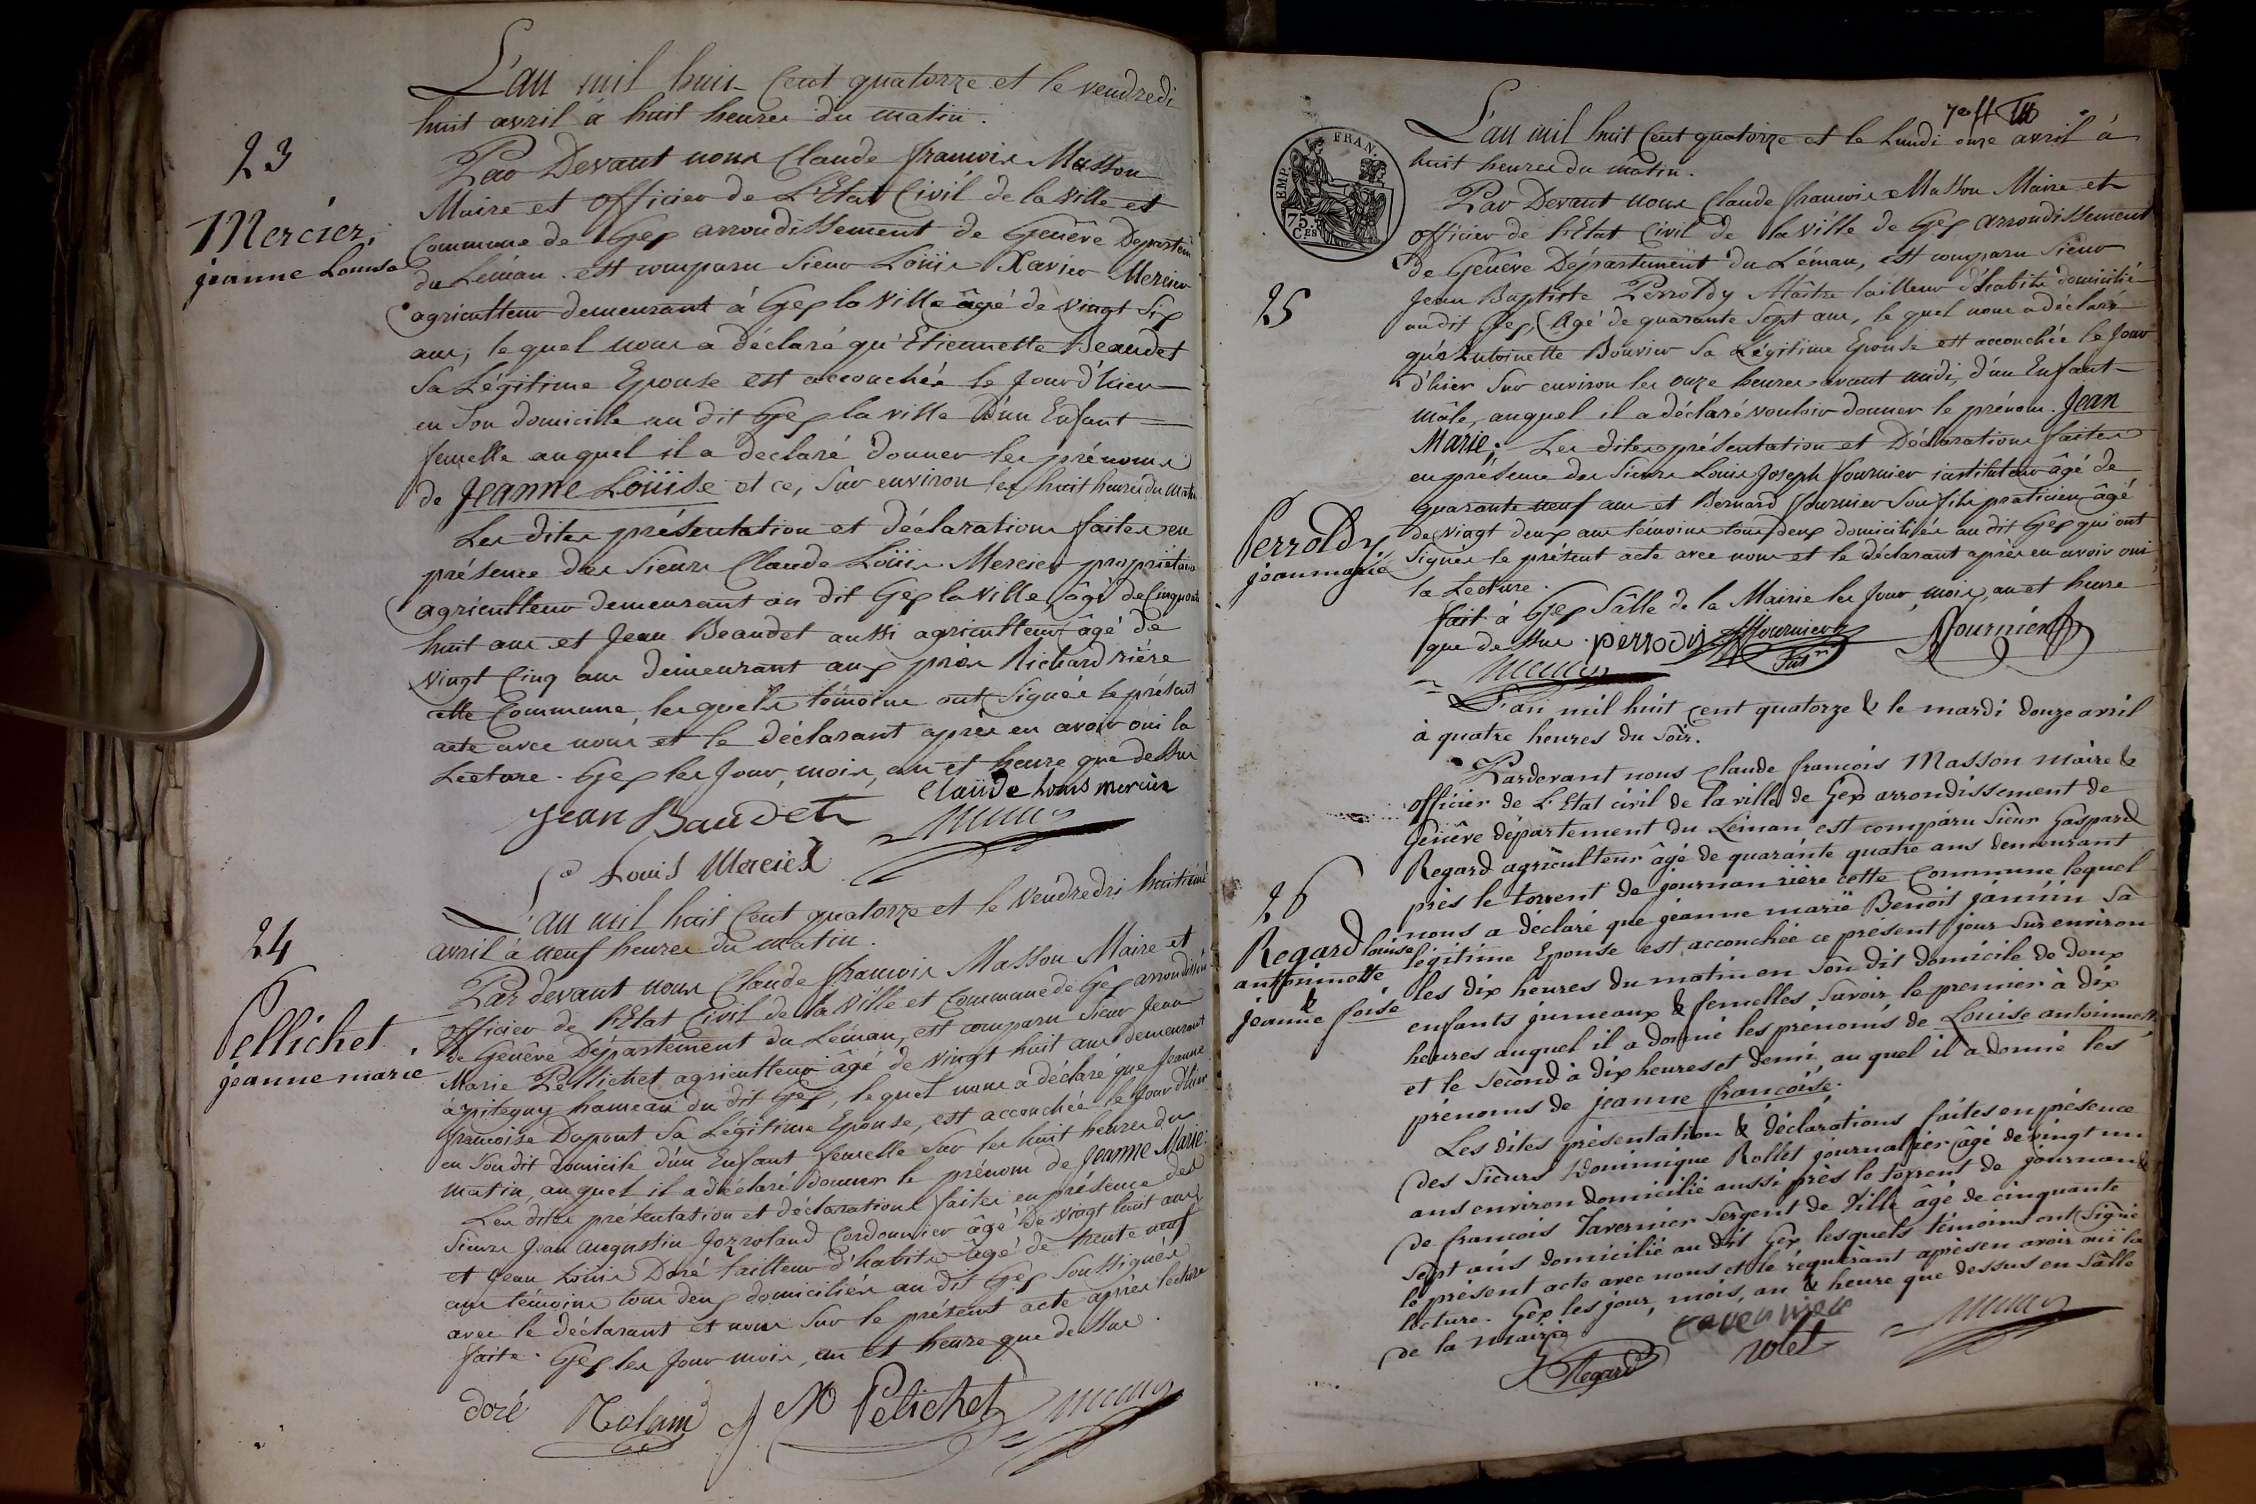 L'an mil huit Cent quatorze et le vendredi
huit avril à huit heures du matin.
23
Par Devant nous Claude francois Masson
Maire et officier de L'Etat Civil de la Ville et
Mercier,
Commune de Gex arrondissement de Genêve Departemt
jeanne Louise
du Léman. est comparu Sieur Loüis Xavier Mercier
agriculteur demeurant à Gex la Ville âgé de vingt Six
ans, lequel nous a déclaré qu'Etiennette Beaudet
Sa Légitime Epouse est accouchée le Jour d'hier
en Son domicile au dit Gex la ville D'un Enfant
femelle auquel il a declaré donner les prénoms
de Jeanne Loüise et ce, Sur environ les huit heures du matin
Les dites présentation et déclarations faites en
présence des Sieurs Claude Loüis Mercier propriétaire
agriculteur demeurant au dit Gex la Ville, âgé de Cinquante
huit ans et Jean Beaudet aussi agriculteur âgé de
vingt Cinq ans demeurant aux près Richard rière
cette Commune, lesquels témoins ont Signés le présent
acte avec nous et le déclarant après en avoir oui la
Lecture. Gex les Jour, mois, an et heure que dessus
Claude Louis mercier
Jean Baudet
Louis Mercier
L'an mil huit Cent quatorze et le Vendredi huitième
24
avril à neuf heures du matin.
Par devant nous Claude francois Masson Maire et
officier de l'Etat Civil de la Ville et Commune de Gex arrondissemt
Pellichet
de Genêve Département du Léman, est comparu Sieur Jean
jeanne marie
Marie Pellichet agriculteur âgé de vingt huit ans demeurant
à pitegny hameau du dit Gex, lequel nous a déclaré que Jeanne
francoise Dupont Sa Légitime Epouse, est accouchée le Jour d'hier
en Son dit domicile d'un Enfant femelle Sur les huit heures du
matin, auquel il a déclaré donner le prénom de Jeanne Marie.
Les dites présentation et déclarations faites en présence des
Sieurs Jean Augustin Jozroland Cordonnier âgé de vingt huit ans
et Jean Loüis Doré tailleur d'habits âgé de trente neuf
ans témoins tous deux domiciliés au dit Gex Soussignés
avec le déclarant et nous Sur le présent acte après lecture
faite. Gex les Jour mois, an et heure que dessus.
doré Roland J M Pelichet
7e ff
EMP. FRAN.
75 CES
L'an mil huit Cent quatorze et le Lundi onze avril à
huit heures du matin.
Par Devant nous Claude francois Masson Maire et
officier de l'Etat Civil de la Ville de Gex arrondissement
de Genêve Département du Léman, est comparu Sieur
25
Jean Baptiste Perroldy Maître tailleur d'habits domicilié
au dit Gex, Agé de quarante Sept ans, le quel nous a déclaré
qu'Antoinette Bouvier Sa Légitime Epouse est accouchée le Jour
d'hier Sur environ les onze heures avant midi, d'un Enfant
mâle, auquel il a déclaré vouloir donner le prénom. Jean
Marie; Les dites présentation et Déclarations faites
en présence des Sieurs Louis Joseph fournier instituteur âgé de
quarante neuf ans et Bernard fournier Son fils praticien âgé
Perroldy
de vingt deux ans témoins tous deux domiciliés au dit Gex qui ont
jean marie
Signés le présent acte avec nous et le déclarant après en avoir oui
la Lecture.
fait à Gex Sâlle de la Mairie les Jour, mois, an et heure
que dessus. perrody fournier fournier
L'an mil huit cent quatorze & le mardi douze avril
à quatre heures du soir.
Pardevant nous Claude francois Masson maire &
officier de L'Etat civil de la ville de Gex arrondissement de
Genêve département du Léman est comparu Sieur Gaspard
Regard agriculteur âgé de quarante quatre ans demeurant
26
près le torrent de journan rière cette Commune lequel
nous a déclaré que jeanne marie Benoit jannin Sa
Regard louise
légitime Epouse est accouchée ce présent jour sur environ
antoinnette
les dix heures du matin en Son dit domicile de deux
&
enfants jumeaux & femelles savoir le premier à dix
jeanne foise
heures auquel il a donné les prénoms de Louise antoinnette
et le second à dix heures et demi, auquel il a donné les
prénoms de jeanne francoise.
Les dites présentation & déclarations faites en présence
des Sieurs Dominique Rollet journallier âgé de vingt un
ans environ domicilié aussi près le torrent de journan &
de francois Tavernier Sergent de Ville âgé de cinquante
sept ans domicilié au dit Gex lesquels témoins ont signé
le présent acte avec nous et le réquérant après en avoir oui la
lecture. Gex les jour, mois, an & heure que dessus en Sâlle
de la mairie
tavernier
Regard rolet